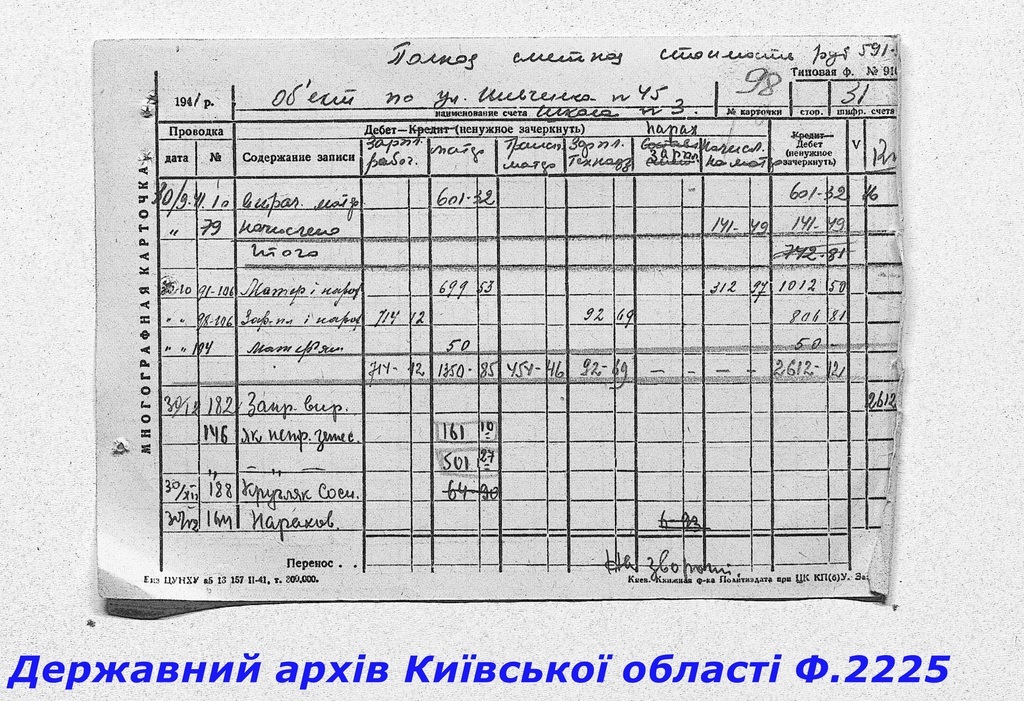 Полная сметная стоимость руб 591-
Типовая ф. № 91
194 / р. Об'ект по ул. Шевченко n 45 98 31
наименование счета Школа n 3. № карточки стор. шифр. счета
Проводка Дебет—Кредит (ненужное зачеркнуть) Кредит Дебет (ненужное зачеркнуть) V
дата № Содержание записи Зарпл. рабоч. матер Трансп. матер Зарпл. Технадз нарах Зарпл. начисл. на матер
30/9 витрач. матер 601-32 601-32
" 79 начислено 141-49 141-49
Итого 742-81
91-106 Матер і нарах 699 53 312 97 1012 50
" " 98-106 Зар.пл і нарах 714 12 92 69 806 81
" " 104 Матер'ял 50 50
714-12 1350-85 451-46 92-69 — — — — 2612-12
182 Запр. вир. 2612
146 як непр. 161 10
— " — 501 27
30/XII 188 Кругляк Сосн. 64-90
Нараков.
6-93
МНОГОГРАФНАЯ КАРТОЧКА
Перенос . . На звороті.
ЦУНХУ 13 157 II-41, т. 300,000. Киев. Книжная ф-ка Политиздата при ЦК КП(б)У. За
Державний архів Київської області Ф.2225